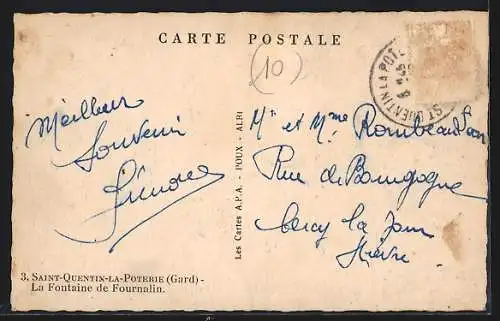 CARTE POSTALE
(10)
ST QUENTIN LA POTE
Meilleur
Souvenir
Mr et Mme Rombeau
Rue de Bourgogne
Cercy la Tour
Nièvre
Les Cartes A.P.A. - POUX - ALBI
3. SAINT-QUENTIN-LA-POTERIE (Gard) -
La Fontaine de Fournalin.